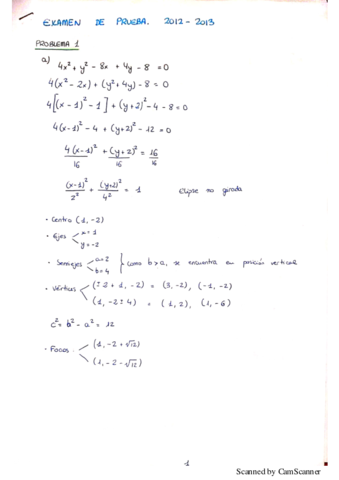 EXAMEN DE PRUEBA. 2012 - 2013
PROBLEMA 1
a) 4x² + y² - 8x + 4y - 8 = 0
4(x² - 2x) + (y² + 4y) - 8 = 0
4[(x - 1)² - 1] + (y + 2)² - 4 - 8 = 0
4(x - 1)² - 4 + (y + 2)² - 12 = 0
4(x - 1)²/16 + (y + 2)²/16 = 16/16
(x - 1)²/2² + (y + 2)²/4² = 1 Elipse no girada
· Centro (1, -2)
· Ejes x = 1
y = -2
· Semiejes a = 2
b = 4 } como b > a, se encuentra en posición vertical
· Vértices (± 2 + 1, -2) = (3, -2), (-1, -2)
(1, -2 ± 4) = (1, 2), (1, -6)
c² = b² - a² = 12
· Focos (1, -2 + √12)
(1, -2 - √12)
1
Scanned by CamScanner